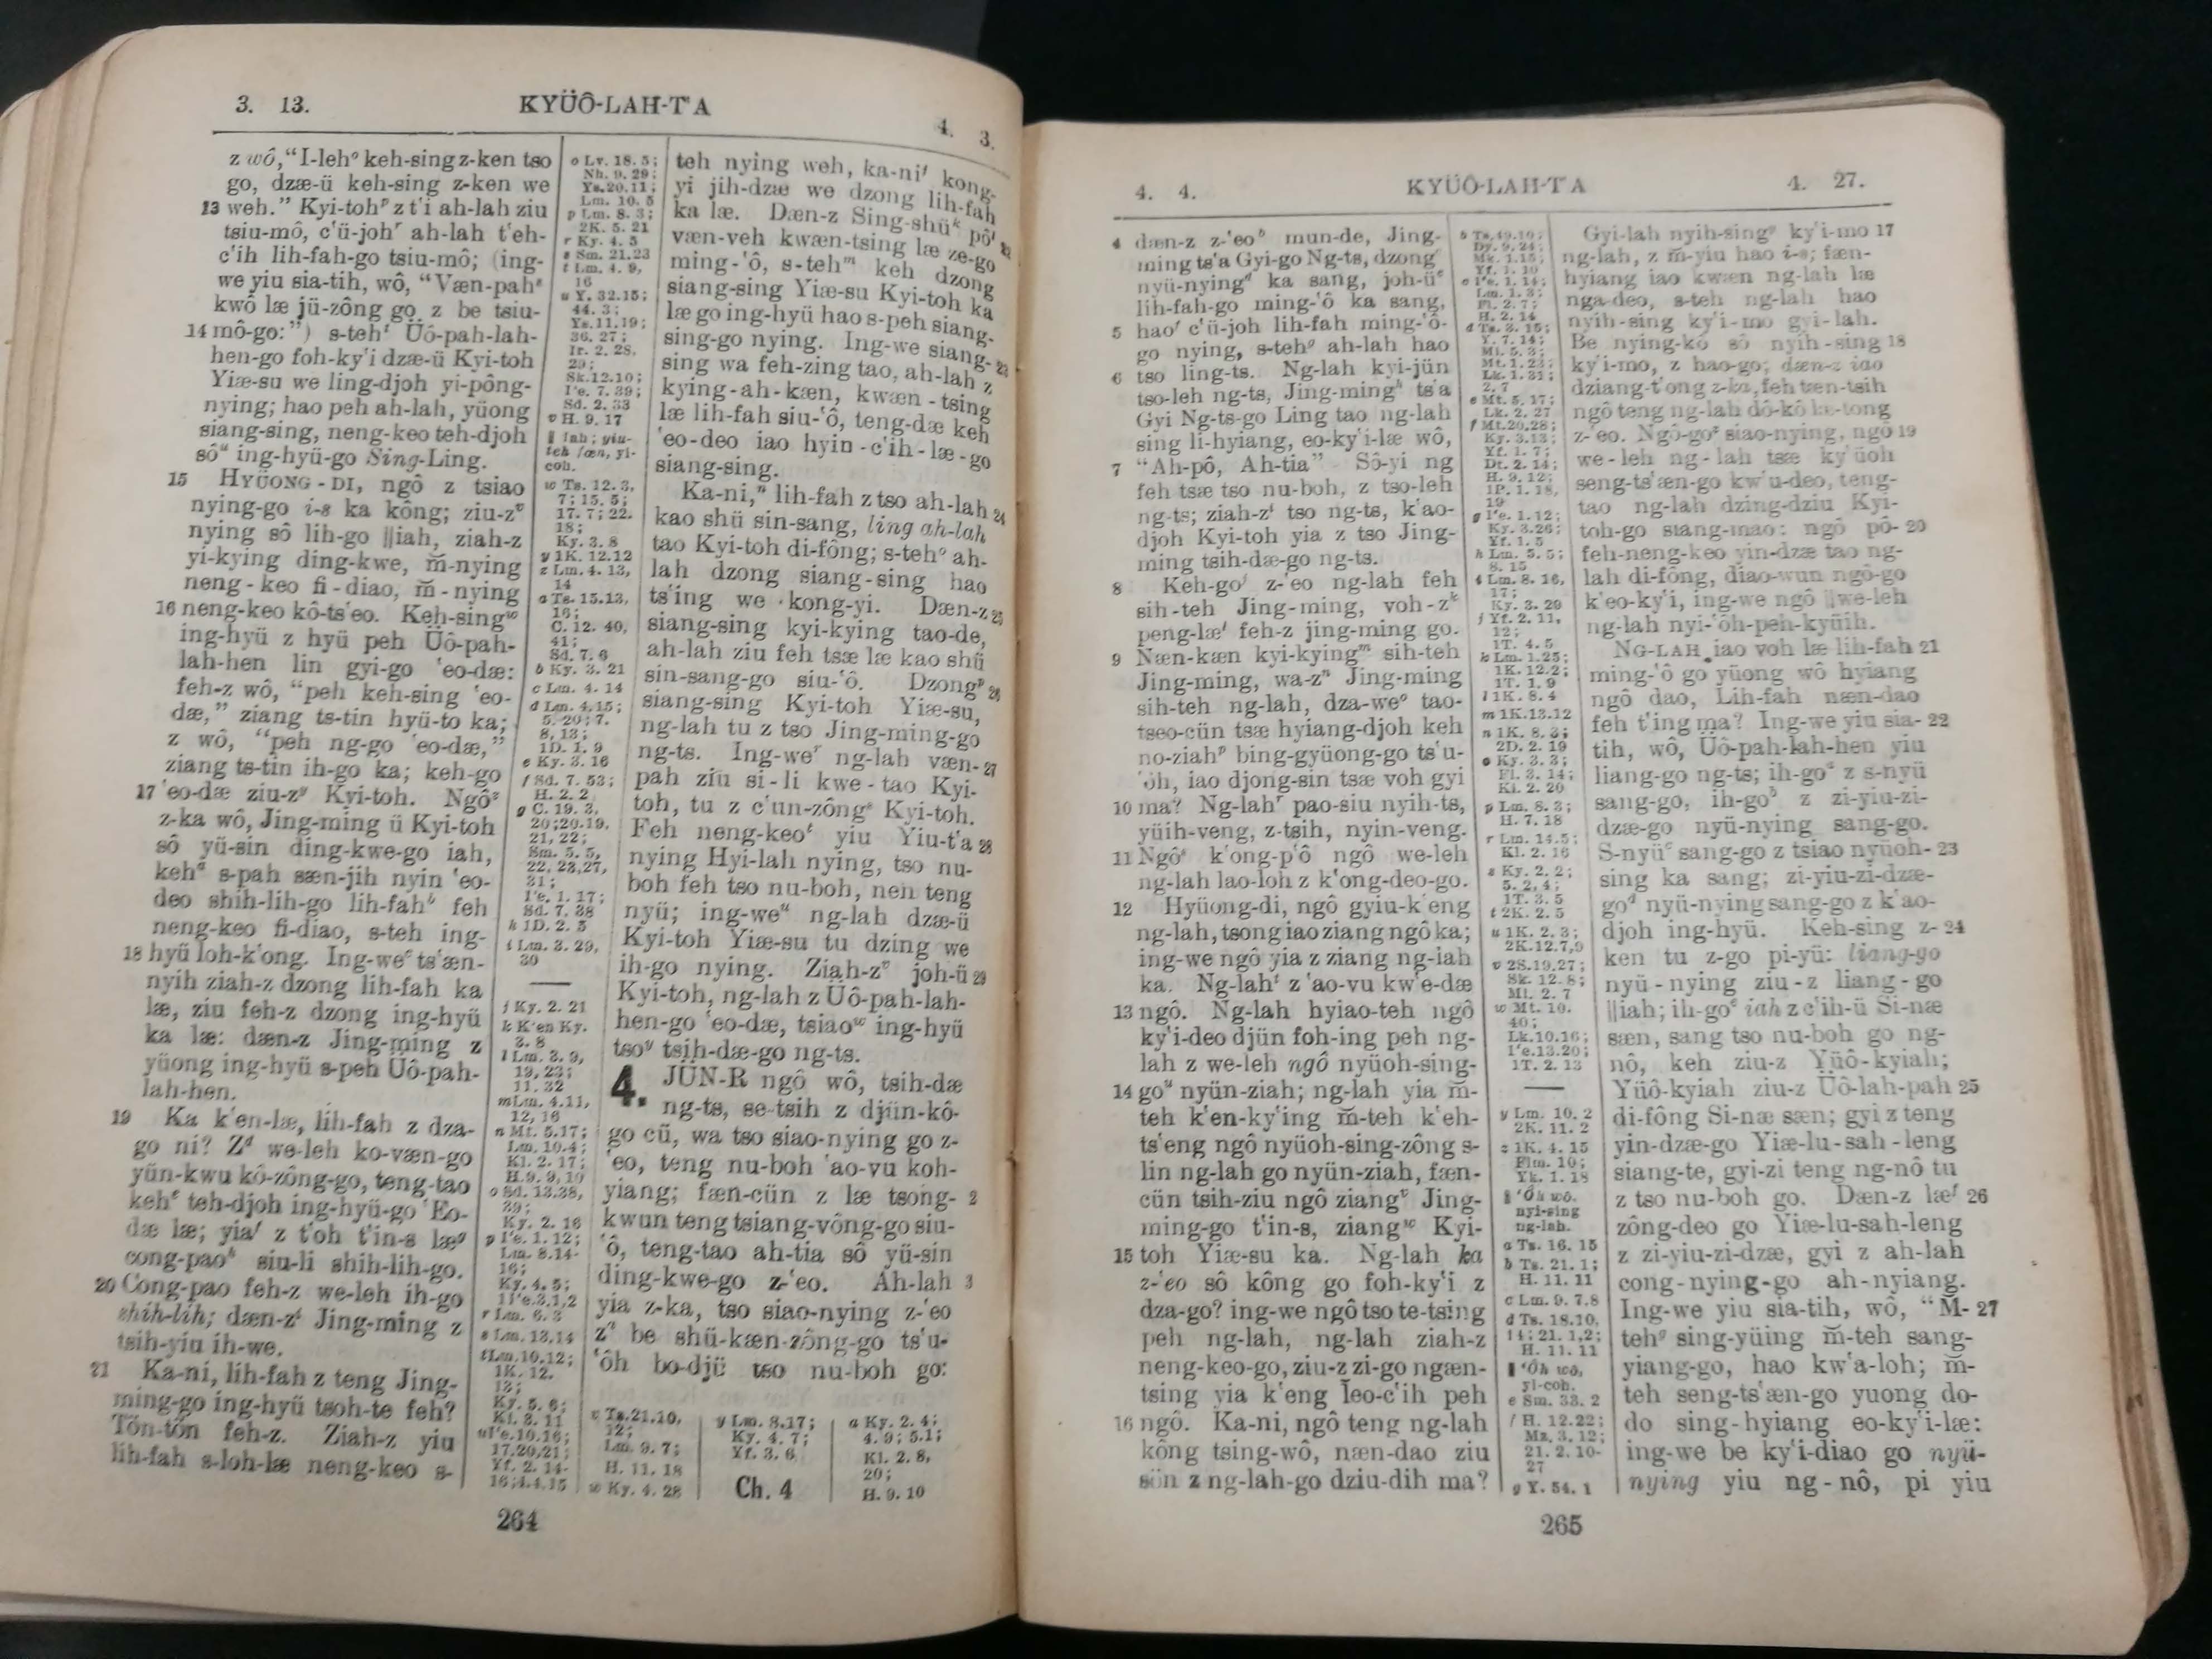 3. 13.
KYÜÔ-LAH-T'A
4. 3.
z wô, “I-lehᵒ keh-sing z-ken tso
go, dzæ-ü keh-sing z-ken we
13 weh.” Kyi-tohᵖ z t'i ah-lah ziu
tsiu-mô, c'ü-johʳ ah-lah t'eh-
c'ih lih-fah-go tsiu-mô; (ing-
we yiu sia-tih, wô, “Væn-pahˢ
kwô læ jü-zông go z be tsiu-
14 mô-go:”) s-tehᵗ Üô-pah-lah-
hen-go foh-ky'i dzæ-ü Kyi-toh
Yiæ-su we ling-djoh yi-pông-
nying; hao peh ah-lah, yüong
siang-sing, neng-keo teh-djoh
sôᵘ ing-hyü-go Sing-Ling.
15 HYÜONG-DI, ngô z tsiao
nying-go i-s ka kông; ziu-zᵛ
nying sô lih-go ‖iah, ziah-z
yi-kying ding-kwe, m̆-nying
neng-keo fi-diao, m̆-nying
16 neng-keo kô-ts'eo. Keh-singʷ
ing-hyü z hyü peh Üô-pah-
lah-hen lin gyi-go 'eo-dæ:
feh-z wô, “peh keh-sing 'eo-
dæ,” ziang ts-tin hyü-to ka;
z wô, “peh ng-go 'eo-dæ,”
ziang ts-tin ih-go ka; keh-go
17 'eo-dæ ziu-zʸ Kyi-toh. Ngôᶻ
z-ka wô, Jing-ming ü Kyi-toh
sô yü-sin ding-kwe-go iah,
kehᵃ s-pah sæn-jih nyin 'eo-
deo shih-lih-go lih-fahᵇ feh
neng-keo fi-diao, s-teh ing-
18 hyü loh-k'ong. Ing-weᶜ ts'æn-
nyih ziah-z dzong lih-fah ka
læ, ziu feh-z dzong ing-hyü
ka læ: dæn-z Jing-ming z
yüong ing-hyü s-peh Üô-pah-
lah-hen.
19 Ka k'en-læ, lih-fah z dza-
go ni? Zᵈ we-leh ko-væn-go
yün-kwu kô-zông-go, teng-tao
kehᵉ teh-djoh ing-hyü-go 'Eo-
dæ læ; yiaᶠ z t'oh t'in-s læᵍ
cong-paoʰ siu-li shih-lih-go.
20 Cong-pao feh-z we-leh ih-go
shih-lih; dæn-zⁱ Jing-ming z
tsih-yiu ih-we.
21 Ka-ni, lih-fah z teng Jing-
ming-go ing-hyü tsoh-te feh?
Tön-tön feh-z. Ziah-z yiu
lih-fah s-loh-læ neng-keo s-
o Lv. 18. 5;
Nh. 9. 29;
Ys. 20. 11;
Lm. 10. 5
p Lm. 8. 3;
2K. 5. 21
r Ky. 4. 5
s Sm. 21.23
t Lm. 4. 9,
16
u Y. 32.15;
44. 3;
Ys. 11.19;
36. 27;
Ir. 2. 28,
29;
Sk.12.10;
I'e. 7. 39;
Sd. 2. 33
v H. 9. 17
‖ Iah; yiu-
teh fæn, yi-
coh.
w Ts. 12. 3,
7; 15. 5;
17. 7; 22.
18;
Ky. 3. 8
y 1K. 12.12
z Lm. 4. 13,
14
a Ts. 15.13,
16;
C. 12. 40,
41;
Sd. 7. 6
b Ky. 3. 21
c Lm. 4. 14
d Lm. 4.15;
5. 20; 7.
8, 13;
1D. 1. 9
e Ky. 3. 16
f Sd. 7. 53;
H. 2. 2
g C. 19. 3,
20; 20.19,
21, 22;
Sm. 5. 5,
22, 23,27,
31;
I'e. 1. 17;
Sd. 7. 38
h 1D. 2. 5
i Lm. 3. 29,
30
j Ky. 2. 21
k K'en Ky.
3. 8
l Lm. 3. 9,
19, 23;
11. 32
m Lm. 4.11,
12, 16
n Mt. 5.17;
Lm. 10.4;
Kl. 2. 17;
H. 9. 9, 10
o Sd. 13.38,
39;
Ky. 2. 16
p I'e. 1. 12;
Lm. 8.14-
16;
Ky. 4. 5;
1I'e.3.1,2
r Lm. 6. 3
s Lm. 13.14
t Lm. 10.12;
1K. 12.
13;
Ky. 5. 6;
Kl. 3. 11
u I'e.10.16;
17.20,21;
Yf. 2. 14-
16;4.4,15
teh nying weh, ka-niʲ kong-
yi jih-dzæ we dzong lih-fah
ka læ. Dæn-z Sing-shüᵏ pôˡ 22
væn-veh kwæn-tsing læ ze-go
ming-'ô, s-tehᵐ keh dzong
siang-sing Yiæ-su Kyi-toh ka
læ go ing-hyü hao s-peh siang-
sing-go nying. Ing-we siang- 23
sing wa feh-zing tao, ah-lah z
kying-ah-kæn, kwæn-tsing
læ lih-fah siu-'ô, teng-dæ keh
'eo-deo iao hyin-c'ih-læ-go
siang-sing.
Ka-ni,ⁿ lih-fah z tso ah-lah 24
kao shü sin-sang, ling ah-lah
tao Kyi-toh di-fông; s-tehᵒ ah-
lah dzong siang-sing hao
ts'ing we kong-yi. Dæn-z 25
siang-sing kyi-kying tao-de,
ah-lah ziu feh tsæ læ kao shü
sin-sang-go siu-'ô. Dzongᵖ 26
siang-sing Kyi-toh Yiæ-su,
ng-lah tu z tso Jing-ming-go
ng-ts. Ing-weʳ ng-lah væn- 27
pah ziu si-li kwe-tao Kyi-
toh, tu z c'un-zôngˢ Kyi-toh.
Feh neng-keoᵗ yiu Yiu-t'a 28
nying Hyi-lah nying, tso nu-
boh feh tso nu-boh, nen teng
nyü; ing-weᵘ ng-lah dzæ-ü
Kyi-toh Yiæ-su tu dzing we
ih-go nying. Ziah-zᵛ joh-ü 29
Kyi-toh, ng-lah z Üô-pah-lah-
hen-go 'eo-dæ, tsiaoʷ ing-hyü
tsoʸ tsih-dæ-go ng-ts.
4. JÜN-R ngô wô, tsih-dæ
ng-ts, se-tsih z djün-kô-
go cü, wa tso siao-nying go z-
'eo, teng nu-boh 'ao-vu koh-
yiang; fæn-cün z læ tsong- 2
kwun teng tsiang-vông-go siu-
'ô, teng-tao ah-tia sô yü-sin
ding-kwe-go z-'eo. Ah-lah 3
yia z-ka, tso siao-nying z-'eo
zᵃ be shü-kæn-zông-go ts'u-
'ôh bo-djü tso nu-boh go:
v Ts.21.10,
12;
Lm. 9. 7;
H. 11. 18
w Ky. 4. 28
y Lm. 8.17;
Ky. 4. 7;
Yf. 3. 6
Ch. 4
a Ky. 2. 4;
4. 9; 5.1;
Kl. 2. 8,
20;
H. 9. 10
264
4. 4.
KYÜÔ-LAH-T'A
4. 27.
4 dæn-z z-'eoᵇ mun-de, Jing-
ming ts'a Gyi-go Ng-ts, dzong
nyü-nyingᵈ ka sang, joh-üᵉ
lih-fah-go ming-'ô ka sang,
5 haoᶠ c'ü-joh lih-fah ming-'ô-
go nying, s-tehᵍ ah-lah hao
6 tso ling-ts. Ng-lah kyi-jün
tso-leh ng-ts, Jing-mingʰ ts'a
Gyi Ng-ts-go Ling tao ng-lah
sing li-hyiang, eo-ky'i-læ wô,
7 “Ah-pô, Ah-tia” Sô-yi ng
feh tsæ tso nu-boh, z tso-leh
ng-ts; ziah-zⁱ tso ng-ts, k'ao-
djoh Kyi-toh yia z tso Jing-
ming tsih-dæ-go ng-ts.
8 Keh-goʲ z-'eo ng-lah feh
sih-teh Jing-ming, voh-zᵏ
peng-læˡ feh-z jing-ming go.
9 Næn-kæn kyi-kyingᵐ sih-teh
Jing-ming, wa-zⁿ Jing-ming
sih-teh ng-lah, dza-weᵒ tao-
tseo-cün tsæ hyiang-djoh keh
no-ziahᵖ bing-gyüong-go ts'u-
'ôh, iao djong-sin tsæ voh gyi
10 ma? Ng-lahʳ pao-siu nyih-ts,
yüih-veng, z-tsih, nyin-veng.
11 Ngôˢ k'ong-p'ô ngô we-leh
ng-lah lao-loh z k'ong-deo-go.
12 Hyüong-di, ngô gyiu-k'eng
ng-lah, tsong iao ziang ngô ka;
ing-we ngô yia z ziang ng-iah
ka. Ng-lahᵗ z 'ao-vu kw'e-dæ
13 ngô. Ng-lah hyiao-teh ngô
ky'i-deo djün foh-ing peh ng-
lah z we-leh ngô nyüoh-sing-
14 goᵘ nyün-ziah; ng-lah yia m̆-
teh k'en-ky'ing m̆-teh k'eh-
ts'eng ngô nyüoh-sing-zông s-
lin ng-lah go nyün-ziah, fæn-
cün tsih-ziu ngô ziangᵛ Jing-
ming-go t'in-s, ziangʷ Kyi-
15 toh Yiæ-su ka. Ng-lah ka
z-'eo sô kông go foh-ky'i z
dza-go? ing-we ngô tso te-tsing
peh ng-lah, ng-lah ziah-z
neng-keo-go, ziu-z zi-go ngæn-
tsing yia k'eng leo-c'ih peh
16 ngô. Ka-ni, ngô teng ng-lah
kông tsing-wô, næn-dao ziu
sön z ng-lah-go dziu-dih ma?
b Ts.49.10;
Dy. 9. 24;
Mk. 1.15;
Yf. 1. 10
c I'e. 1. 14;
Lm. 1. 3;
Fl. 2. 7;
H. 2. 14
d Ts. 3. 15;
Y. 7. 14;
Mi. 5. 3;
Mt. 1. 23;
Lk. 1. 31;
2. 7
e Mt. 5. 17;
Lk. 2. 27
f Mt.20.28;
Ky. 3.13;
Yf. 1. 7;
Dt. 2. 14;
H. 9. 12;
1P. 1. 18,
19
g I'e. 1. 12;
Ky. 3.26;
Yf. 1. 5
h Lm. 5. 5;
8. 15
i Lm. 8. 16,
17;
Ky. 3. 29
j Yf. 2. 11,
12;
1T. 4. 5
k Lm. 1.25;
1K. 12.2;
1T. 1. 9
l 1K. 8. 4
m 1K.13.12
n 1K. 8. 3;
2D. 2. 19
o Ky. 3. 3;
Fl. 3. 14;
Kl. 2. 20
p Lm. 8. 3;
H. 7. 18
r Lm. 14.5;
Kl. 2. 16
s Ky. 2. 2;
5. 2, 4;
1T. 3. 5
t 2K. 2. 5
u 1K. 2. 3;
2K.12.7,9
v 2S.19.27;
Sk. 12.8;
Ml. 2. 7
w Mt. 10.
40;
Lk.10.16;
I'e.13.20;
1T. 2. 13
y Lm. 10. 2
2K. 11. 2
z 1K. 4. 15
Flm. 10;
Yk. 1. 18
‖ 'Ôh wô.
nyi-sing
ng-lah.
a Ts. 16. 15
b Ts. 21. 1;
H. 11. 11
c Lm. 9. 7.8
d Ts. 18.10,
14; 21. 1,2;
H. 11. 11
‖ 'Ôh wô,
yi-coh.
e Sm. 33. 2
f H. 12.22;
Ma. 3. 12;
21. 2. 10-
27
g Y. 54. 1
Gyi-lah nyih-singᵞ ky'i-mo 17
ng-lah, z m̆-yiu hao i-s; fæn-
hyiang iao kwæn ng-lah læ
nga-deo, s-teh ng-lah hao
nyih-sing ky'i-mo gyi-lah.
Be nying-kô sô nyih-sing 18
ky'i-mo, z hao-go; dæn-z iao
dziang-t'ong z-ka, feh tæn-tsih
ngô teng ng-lah dô-kô læ-tong
z-'eo. Ngô-goᶻ siao-nying, ngô 19
we-leh ng-lah tsæ ky'üoh
seng-ts'æn-go kw'u-deo, teng-
tao ng-lah dzing-dziu Kyi-
toh-go siang-mao: ngô pô- 20
feh-neng-keo yin-dzæ tao ng-
lah di-fông, diao-wun ngô-go
k'eo-ky'i, ing-we ngô ‖we-leh
ng-lah nyi-'ôh-peh-kyüih.
NG-LAH iao voh læ lih-fah 21
ming-'ô go yüong wô hyiang
ngô dao, Lih-fah næn-dao
feh t'ing ma? Ing-we yiu sia- 22
tih, wô, Üô-pah-lah-hen yiu
liang-go ng-ts; ih-goᵃ z s-nyü
sang-go, ih-goᵇ z zi-yiu-zi-
dzæ-go nyü-nying sang-go.
S-nyüᶜ sang-go z tsiao nyüoh- 23
sing ka sang; zi-yiu-zi-dzæ-
goᵈ nyü-nying sang-go z k'ao-
djoh ing-hyü. Keh-sing z- 24
ken tu z-go pi-yü: liang-go
nyü-nying ziu-z liang-go
‖iah; ih-goᵉ iah z c'ih-ü Si-næ
sæn, sang tso nu-boh go ng-
nô, keh ziu-z Yüô-kyiah;
Yüô-kyiah ziu-z Üô-lah-pah 25
di-fông Si-næ sæn; gyi z teng
yin-dzæ-go Yiæ-lu-sah-leng
siang-te, gyi-zi teng ng-nô tu
z tso nu-boh go. Dæn-z læᶠ 26
zông-deo go Yiæ-lu-sah-leng
z zi-yiu-zi-dzæ, gyi z ah-lah
cong-nying-go ah-nyiang.
Ing-we yiu sia-tih, wô, “M̆- 27
tehᵍ sing-yüing m̆-teh sang-
yiang-go, hao kw'a-loh; m̆-
teh seng-ts'æn-go yuong do-
do sing-hyiang eo-ky'i-læ:
ing-we be ky'i-diao go nyü-
nying yiu ng-nô, pi yiu
265